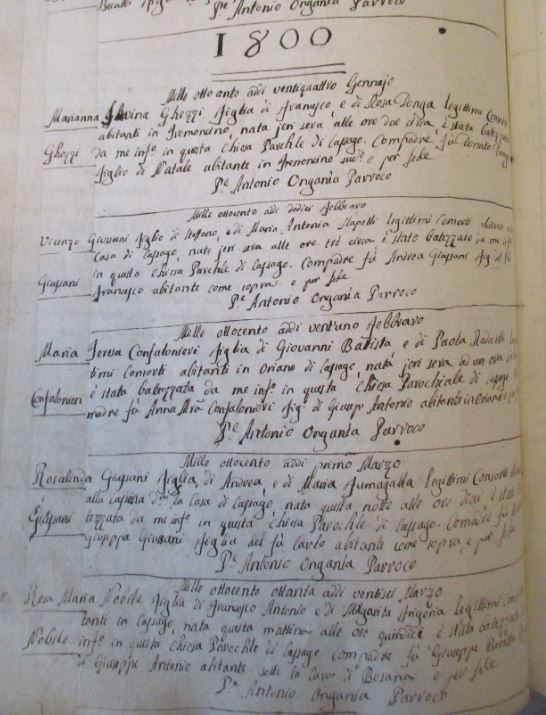 Pe Antonio Organia Parroco
1800
Mille ottocento addi ventiquattro Gennajo
Marianna Ghezzi figlia di Franusco e di Rosa Donga legittimi Consorti
abitanti in Tremoncino, nata jeri sera alle ore due circa è stata batezzata
Ghezzi da me info in questa chiesa Parchle di Cassago. Compadre fù Donato
figlio di Natale abitante in Tremoncino e per fede
Pe Antonio Organia Parroco
Mille ottocento addi dodici febbraro
Vicenzo Giussani figlio di Steffano, e di Maria Antonia legittimi Consorti abitanti alla
Casa di Cassago, nato jeri sera alle ore trè circa è stato batezzato da me info
in questa chiesa Parchle di Cassago. Compadre fù Andrea Giussani fig del fù
Giussani Franusco abitante come sopra e per fede
Pe Antonio Organia Parroco
Mille ottocento addi vent'uno febbraro
Maria Teresa Confalonieri figlia di Giovanni Battista e di Paola Radaelli
timi Consorti abitanti in Oriano di Cassago, nata jeri sera ad un ora
Confalonieri è stata batezzata da me info in questa chiesa Parochiale di Cassago
madre fù Anna Confalonieri fig di Giusepe Antonio abitante in Oriano e
Pe Antonio Organia Parroco
Mille ottocento addi primo Marzo
Rosalinda Giussani figlia di Andrea, e di Maria Fumagalla legittimi Consorti
alla cassina la Casa di Cassago, nata questa notte alle ore dieci è stata
Giussani tezzata da me info in questa chiesa Parochle di Cassago. Comadre fù
Giuseppa Giussani figlia del fù Carlo abitante come sopra e per fede
Pe Antonio Organia Parroco
Mille ottocento ottanta addi ventisei Marzo
Rosa Maria Nobile figlia di Franusco Antonio e di Margarita legittimi
tanti in Cassago, nata questa mattina alle ore quindici è stata batezzata
Nobile info in questa chiesa Parochle di Cassago compadre fù Giuseppe
di Giuseppe Antonio abitante sotto la cura di Besana e per fede
Pe Antonio Organia Parroco